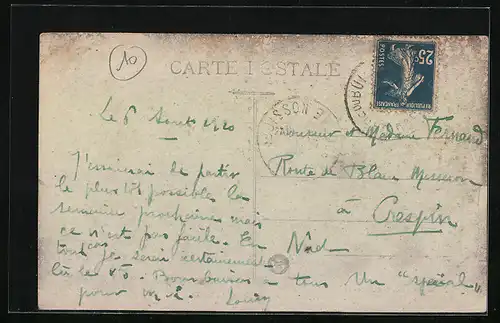 10
CARTE POSTALE
25c
POSTES
REPUBLIQUE FRANCAISE
Le 6 Août 1920
de partir
le plus tôt possible la
semaine prochaine mais
ce n'est pas facile. En
tout cas je serai certainement
là le 15. Bons baisers à tous Un "spécial"
pour
Monsieur et Madame Fernand
Route de Blanc Misseron
à Crespin
Nord